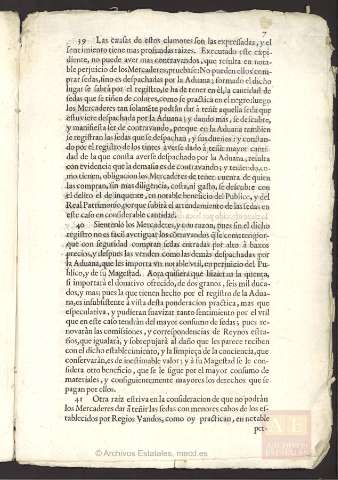 7
39 Las causas de estos clamores son las expressadas, y el
sentimiento tiene mas profundas raizes. Executado este expe-
diente, no puede aver mas contravandos, que resulta en nota-
ble perjuicio de los Mercaderes, pruebase: No pueden estos com-
prar sedas, sino es despachadas por la Aduana; formado el dicho
lugar se sabrà por el registro, se ha de tener en èl, la cantidad de
sedas que se tiñen de colores, como se practica en el negro luego
los Mercaderes tan solamẽte podràn dar à teñir aquella seda que
estuviere despachada por la Aduana; y dando mas, se descubre,
y manifiesta ser de contravando, porque en la Aduana tambien
se registran las sedas que se despachan, y sus dueños: y constan-
do por el registro de los tintes averse dado à teñir mayor canti-
dad de la que consta averse despachado por la Aduana, resulta
con evidencia que la demasia es de contravando; y teniendo, co-
mo tienen, obligacion los Mercaderes de tener cuenta de quien
las compran, sin mas diligencia, costa, ni gasto, se descubre con
el delito el delinquente, en notable beneficio del Publico, y del
Real Patrimonio, porque subirà el arrendamiento de las sedas en
este caso en considerable cantidad.
40 Sientenlo los Mercaderes, y con razon, pues sin el dicho
registro no es facil averiguar los contravandos
que con seguridad compran sedas entradas por alto à baxos
precios, y despues las venden como las demàs despachadas por
la Aduana, que les importa un notable util, en perjuicio del Pu-
blico, y de su Magestad. Aora quisiera que hizieran la quenta,
si importarà el donativo ofrecido, de dos granos, seis mil duca-
dos, y mas; pues la que tienen hecho por el registro de la Adua-
na, es insubsistente à vista desta ponderacion practica, mas que
especulativa, y pudieran suavizar tanto sentimiento por el util
que en este caso tendràn del mayor consumo de sedas; pues re-
novaràn las comisiones, y correspondencias de Reynos estra-
ños, que igualarà, y sobrepujarà al daño que les parece reciben
con el dicho establecimiento, y la limpieça de la conciencia, que
conservaràn, es de inestimable valor; y à su Magestad se le con-
sidera otro beneficio, que se le sigue por el mayor consumo de
materiales, y consiguientemente mayores los derechos que se
pagan por ellos.
41 Otra raiz estriva en la consideracion de que no podràn
los Mercaderes dar à teñir las sedas con menores cabos de los es-
tablecidos por Regios Vandos, como oy practican, en notable
per-
ARCHIVOS
ESTATALES
© Archivos Estatales, mecd.es